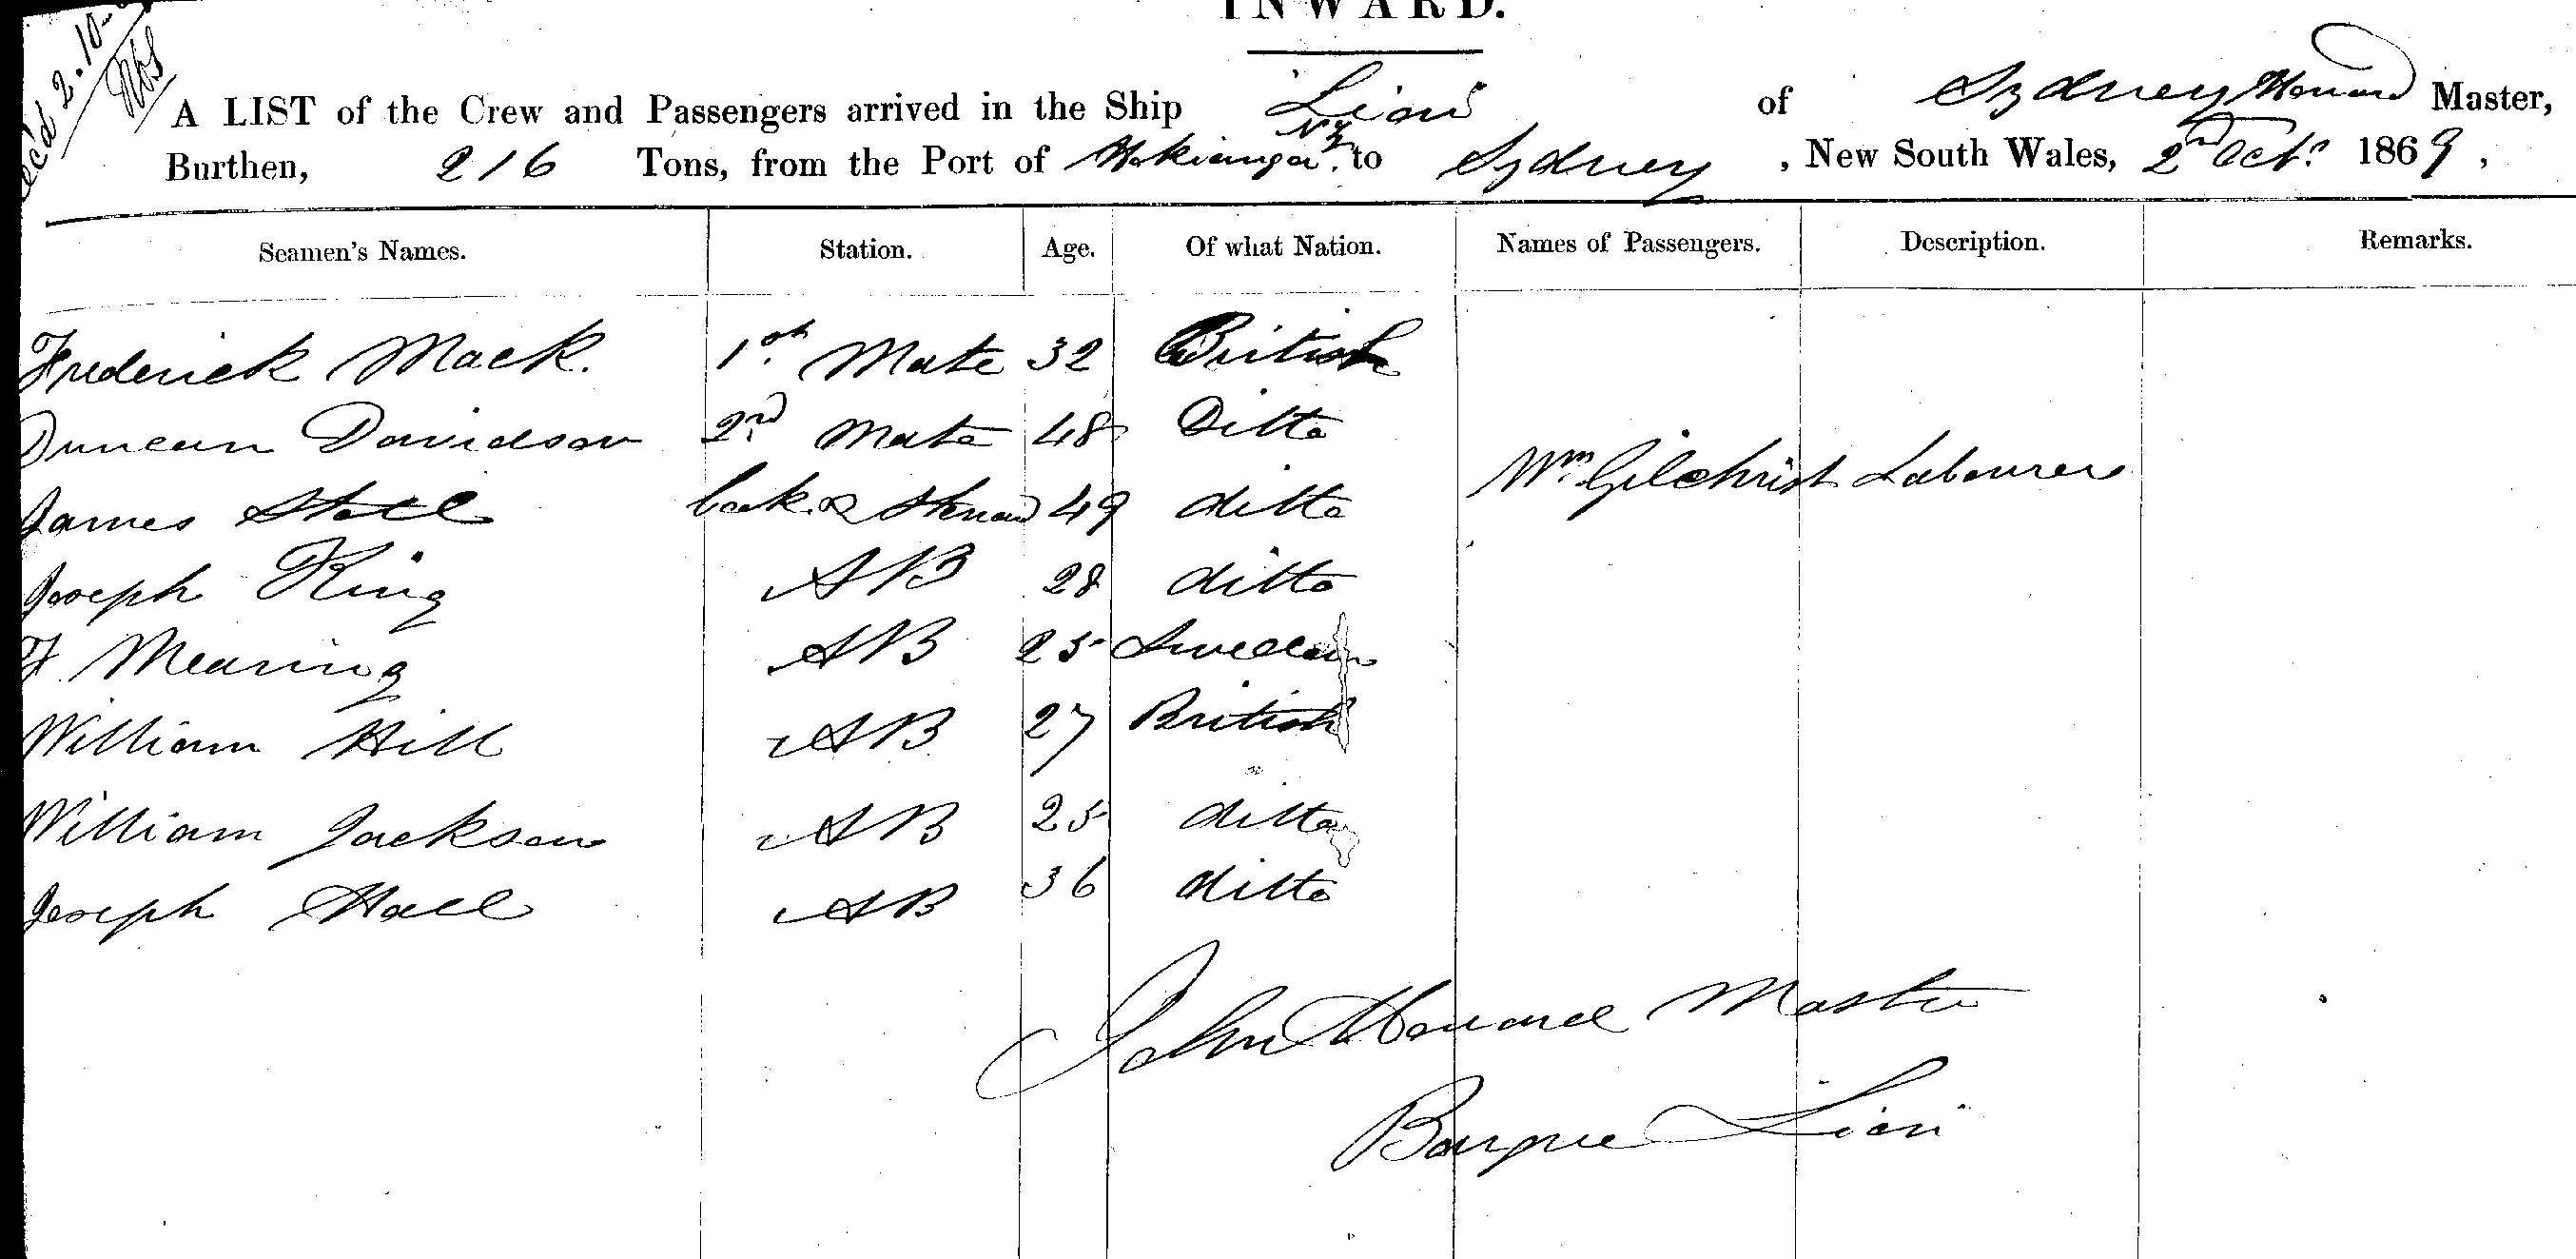 INWARD.
ec'd 2.10.
A LIST of the Crew and Passengers arrived in the Ship "Lion" of Sydney Howard Master,
Burthen, 216 Tons, from the Port of Hokianga N Z to Sydney, New South Wales, 2nd Oct. 1869,
Seamen's Names. Station. Age. Of what Nation. Names of Passengers. Description. Remarks.
Frederick Mack. 1st Mate 32 British
Duncan Davidson 2nd Mate 48 Ditto
Wm Gilchrist Labourer
James Cook & Steward 49 ditto
Joseph King AB 28 ditto
F Mearing AB 25 Sweden
William Hill AB 27 British
William Jackson AB 25 ditto
Joseph Hall AB 36 ditto
John Howard Master
Barque Lion